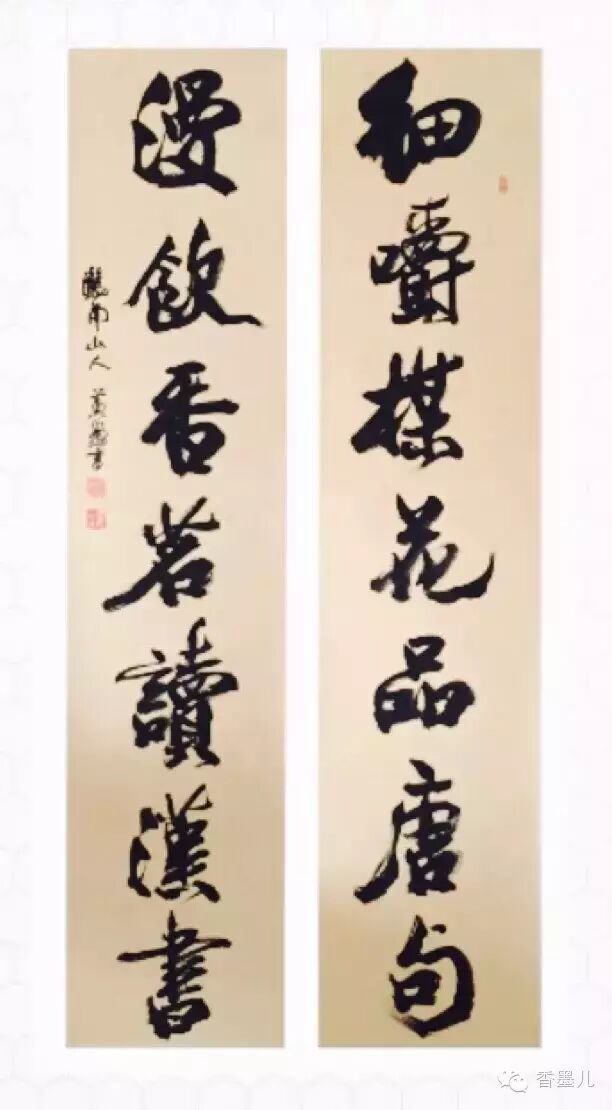 細嚼楳花品唐句
漫飲香茗讀漢書
南山人 黄 書
香墨儿